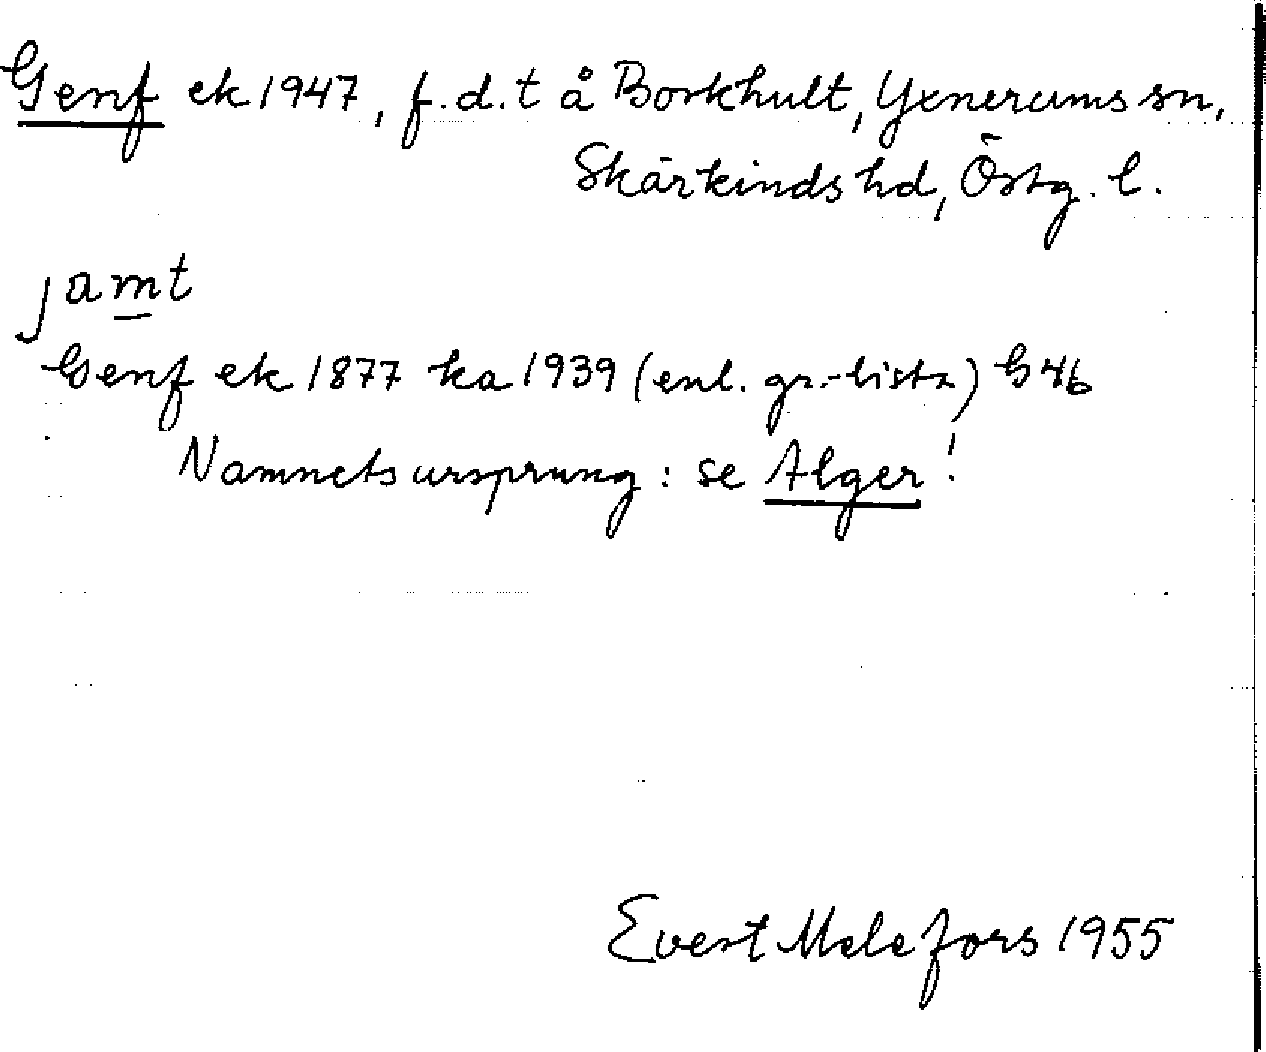 Genf ek 1947, f.d.t å Borkhult, Yxnerums sn,
Skärkinds hd, Östg. l.
jamt
Genf ek 1877 ka 1939 (enl. gr.-lista) G 46
Namnets ursprung: se Alger!
Evert Melefors 1955